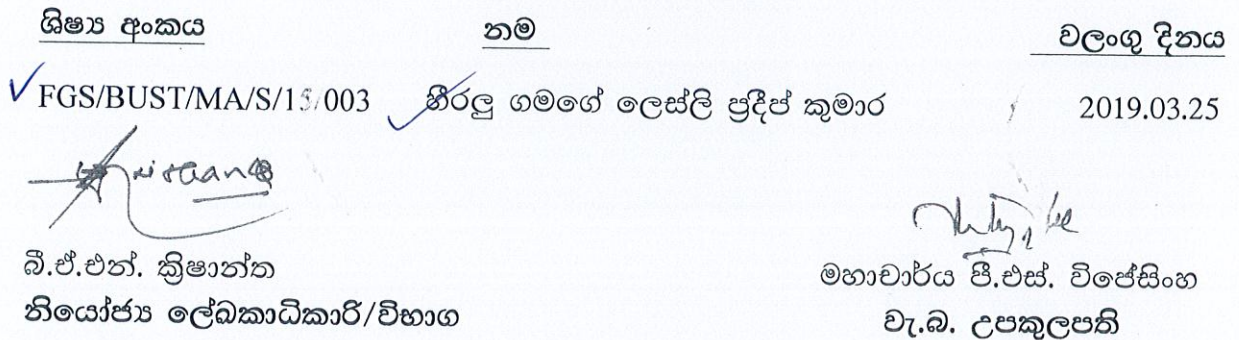 ශිෂ්‍ය අංකය නම වලංගු දිනය
FGS/BUST/MA/S/15/003 හීරලු ගමගේ ලෙස්ලි ප්‍රදීප් කුමාර 2019.03.25
බී.ඒ.එන්. ක්‍රිෂාන්ත
නියෝජ්‍ය ලේඛකාධිකාරි/විභාග
මහාචාර්ය පී.එස්. විජේසිංහ
වැ.බ. උපකුලපති